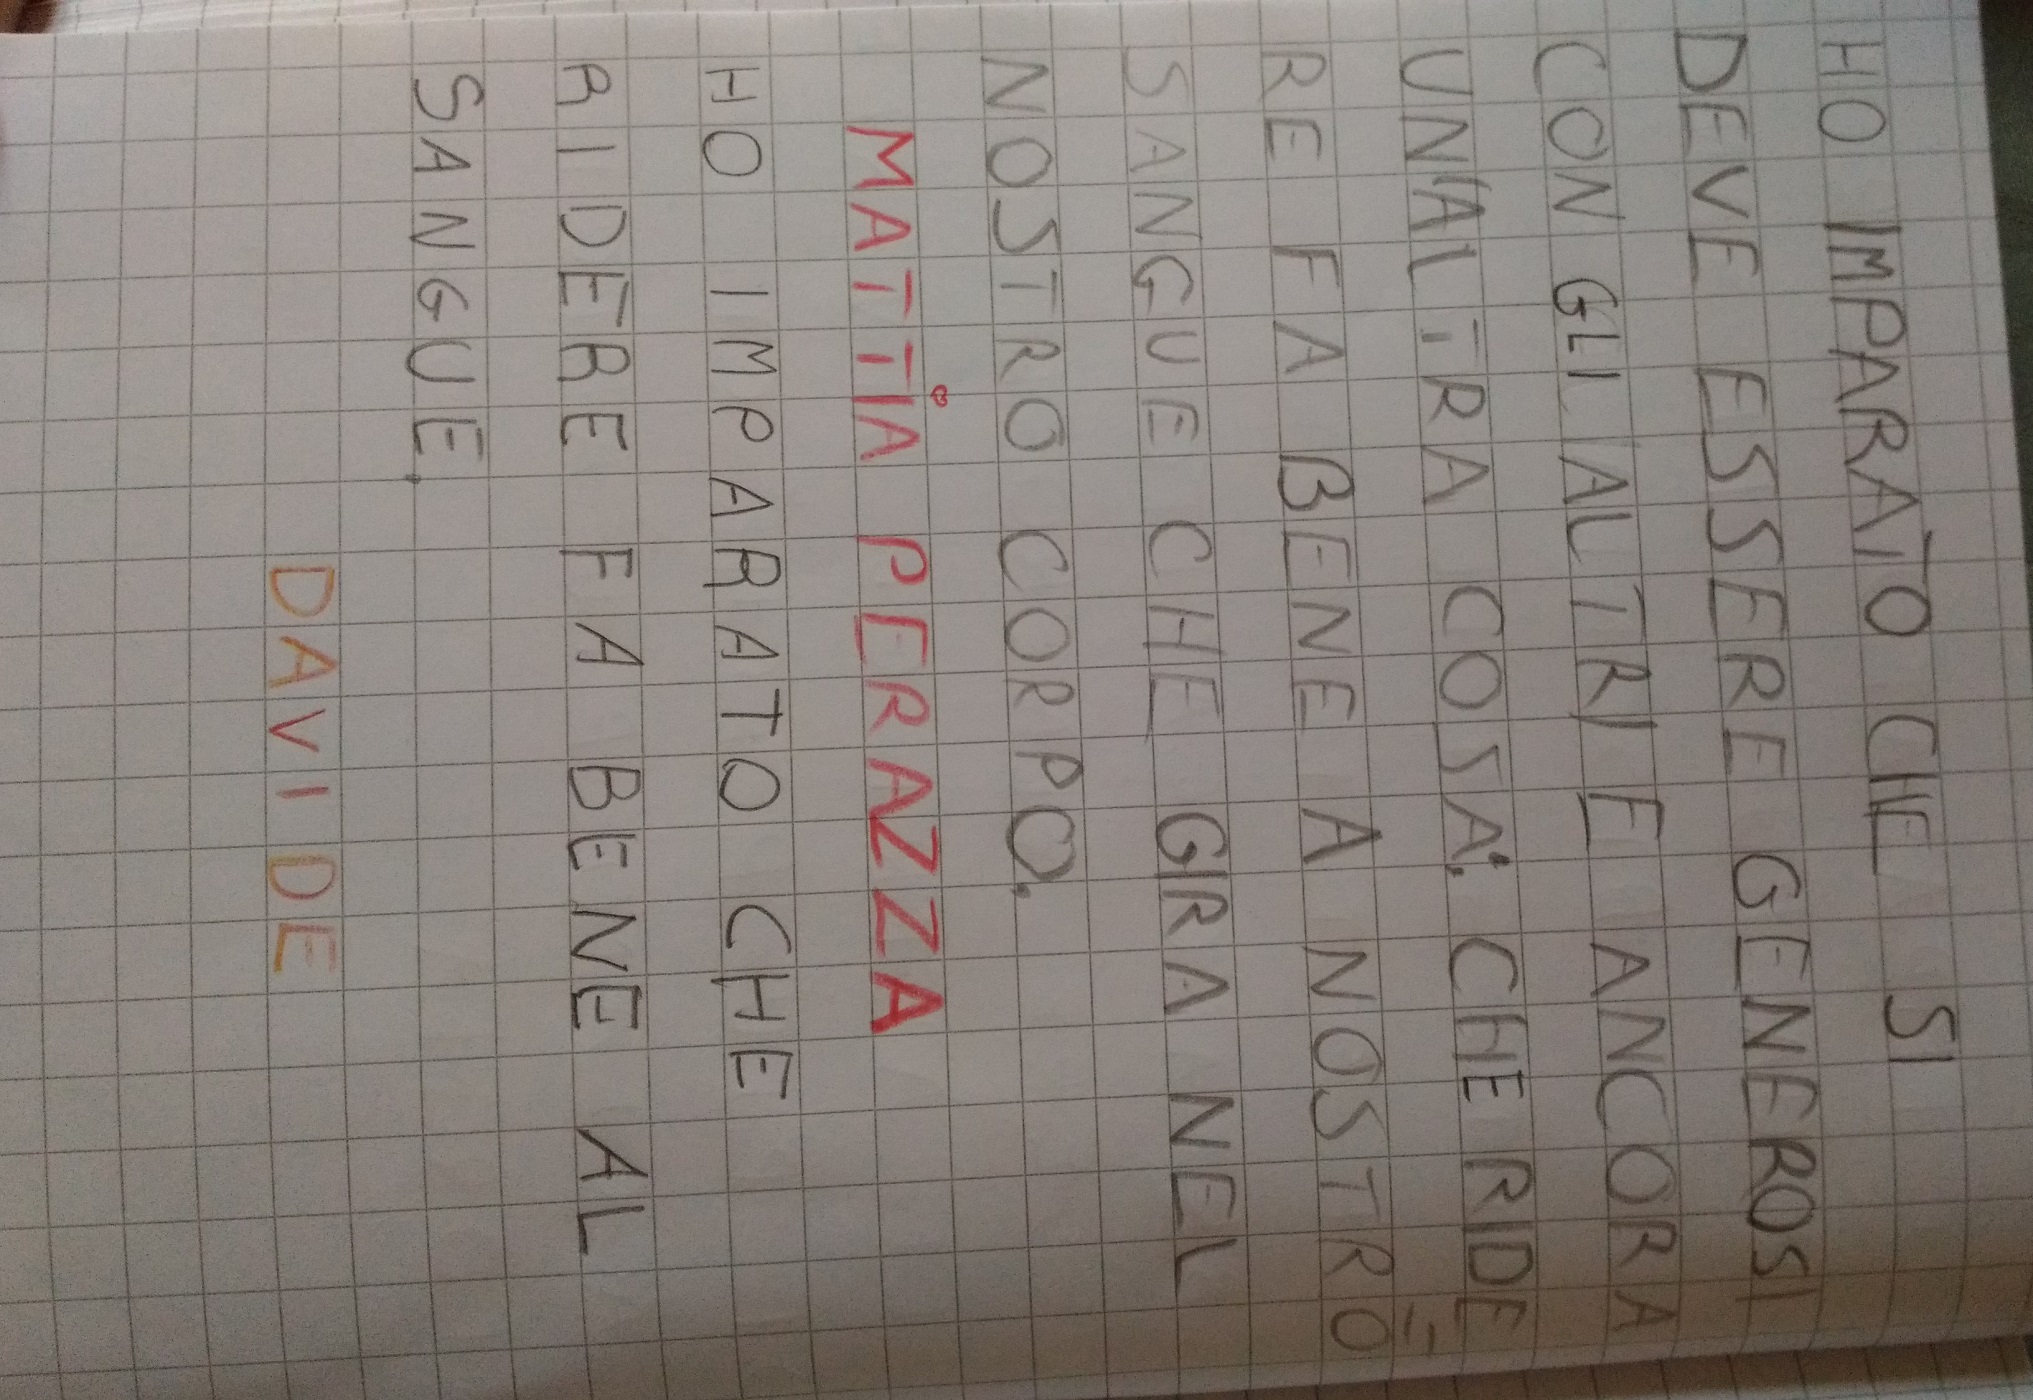 HO IMPARATO CHE SI
DEVE ESSERE GENEROSI
CON GLI ALTRI E ANCORA
UN'ALTRA COSA: CHE RIDE=
RE FA BENE A NOSTRO
SANGUE CHE GIRA NEL
NOSTRO CORPO.
MATTIA PERAZZA
HO IMPARATO CHE
RIDERE FA BENE AL
SANGUE.
DAVIDE